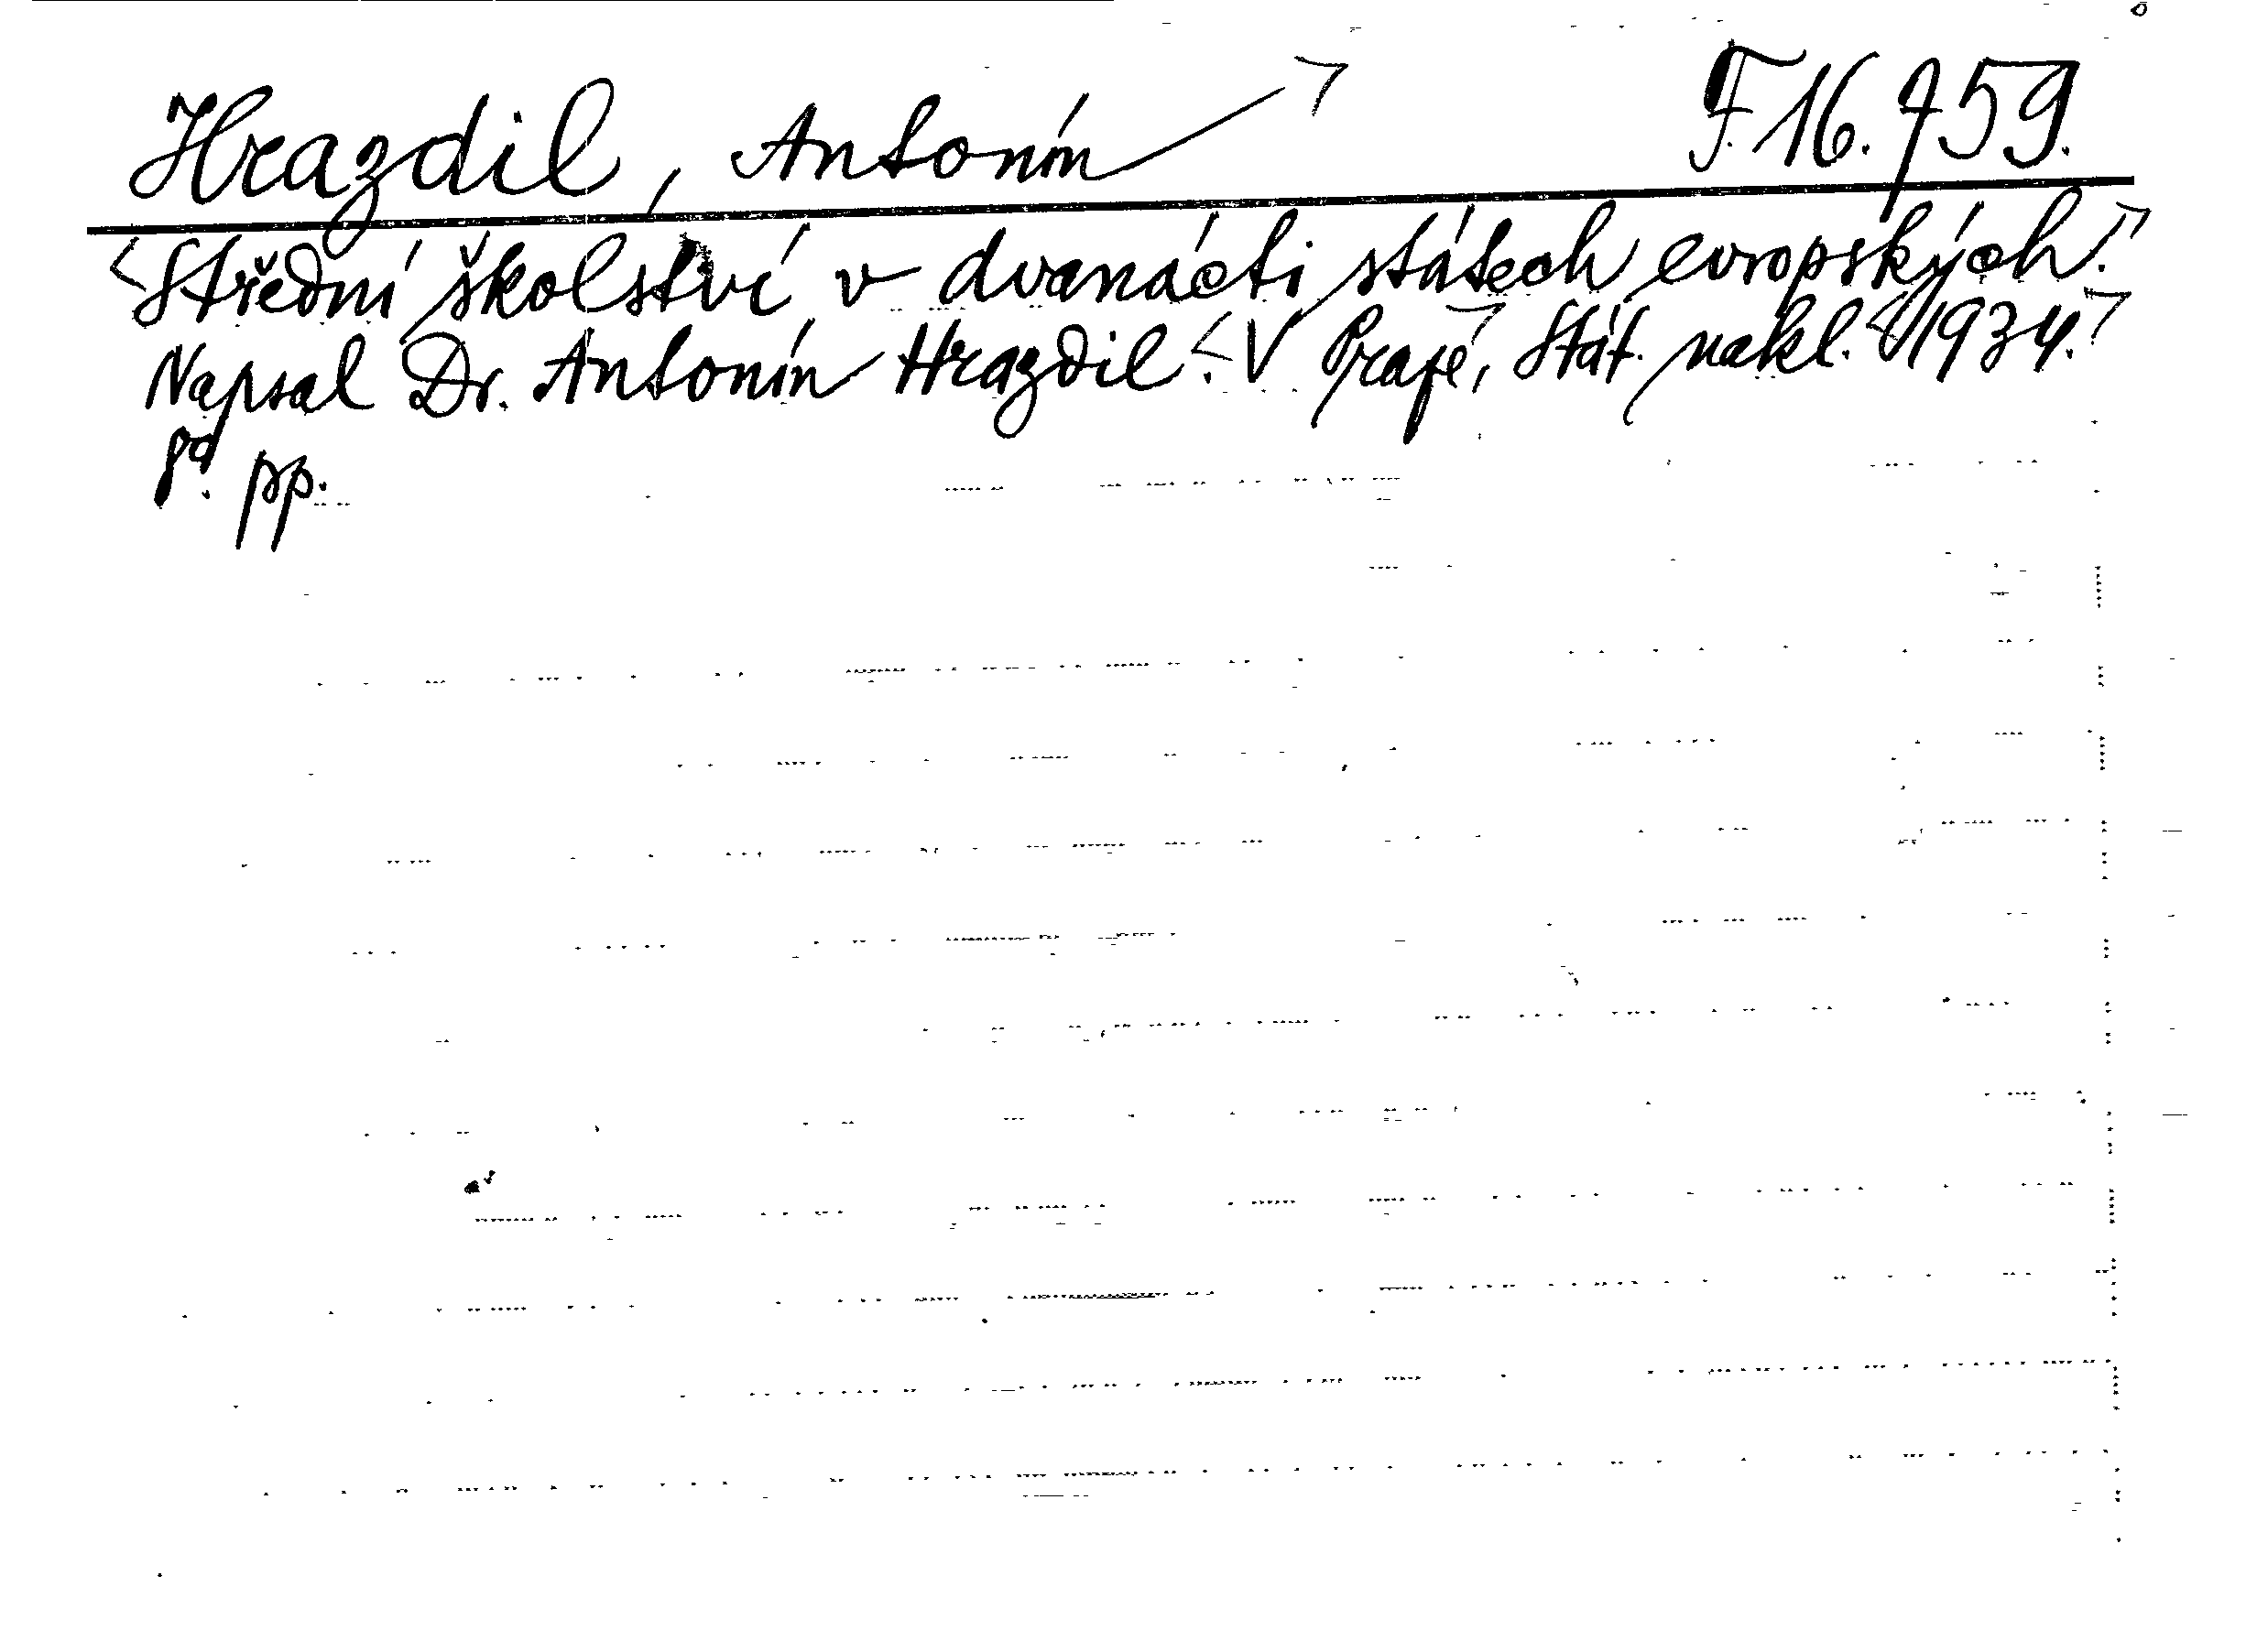 Hrazdil, Antonín F 16.759.
Střední školství v dvanácti státech evropských.
Napsal Dr. Antonín Hrazdil. V Praze, Stát. nakl. 1934.
8º. pp.